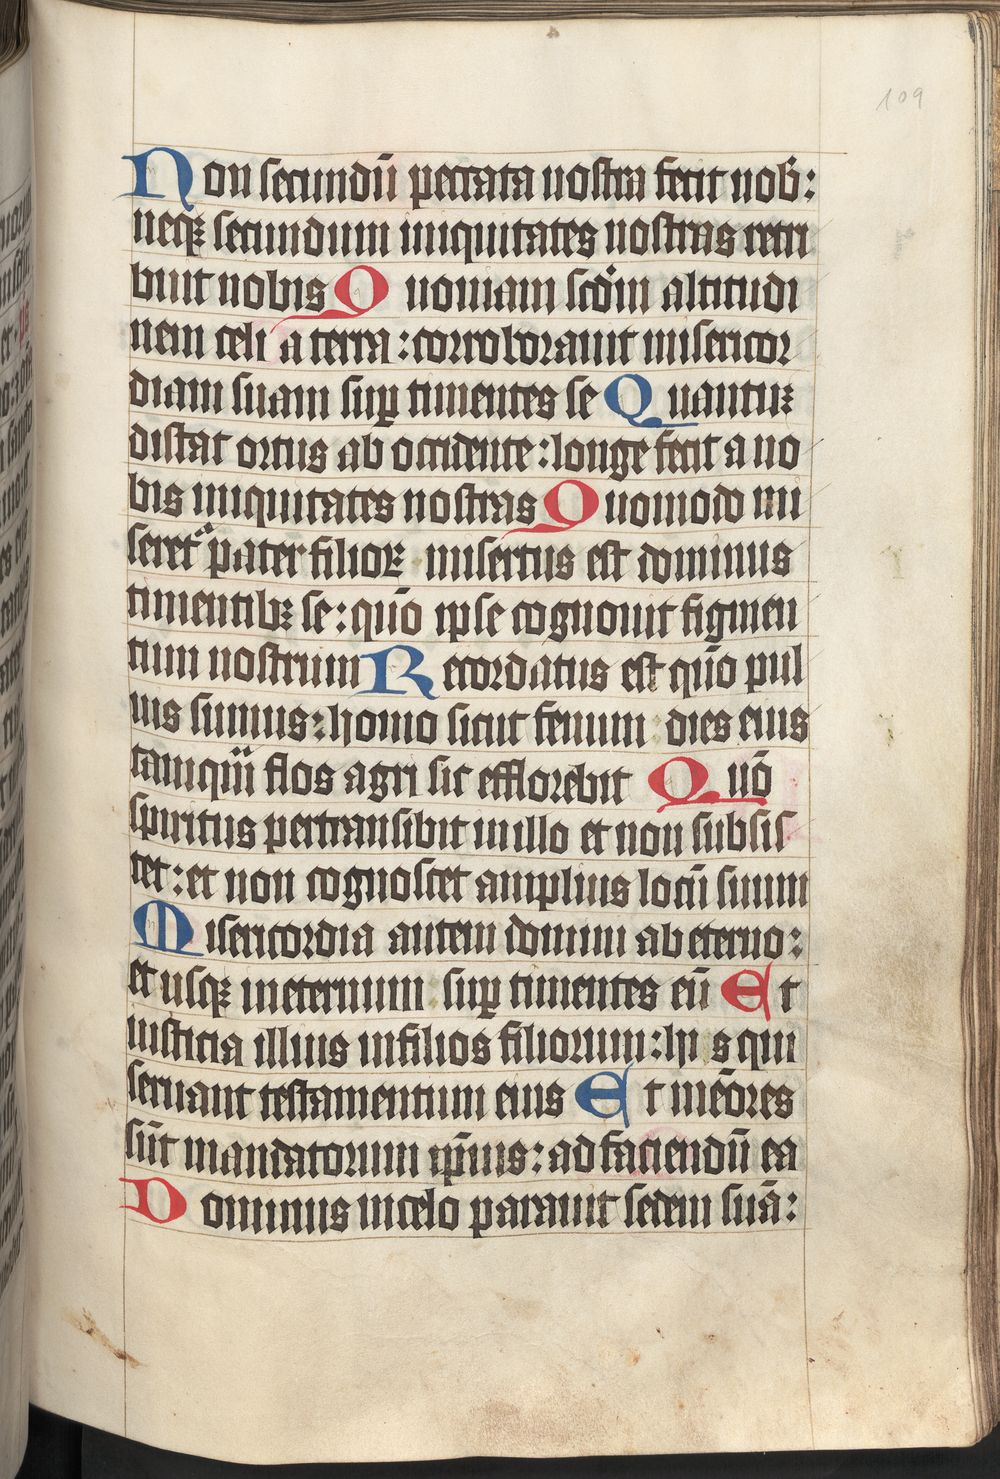 109
Non secundū peccata nostra fecit nob̄:
neqꝫ secundum iniquitates nostras retri
buit nobis Quoniam scd̄m altitudi
nem celi a terra: corroborauit misericor
diam suam suꝑ timentes se Quantuꝫ
distat ortus ab occidente: longe fecit a no
bis iniquitates nostras Quomodo mi
seret᷑ pater filioꝝ misertus est dominus
timentibꝫ se: qm̄o ipse cognouit figmen
tum nostrum Recordatus est qm̄o pul
uis sumus: homo sicut fenum dies eius
tanquā flos agri sic efflorebit Qm̄o
spiritus pertransibit in illo et non subsis
tet: et non cognoscet amplius locū suum
Misericordia autem domini ab eterno:
et usqꝫ in eternum suꝑ timentes eū Et
iusticia illius in filios filiorum: hi s qui
seruant testamentum eius Et mēores
sūt mandatorum ip̄ius: ad faciendū ea
Dominus in celo parauit sedem suā: